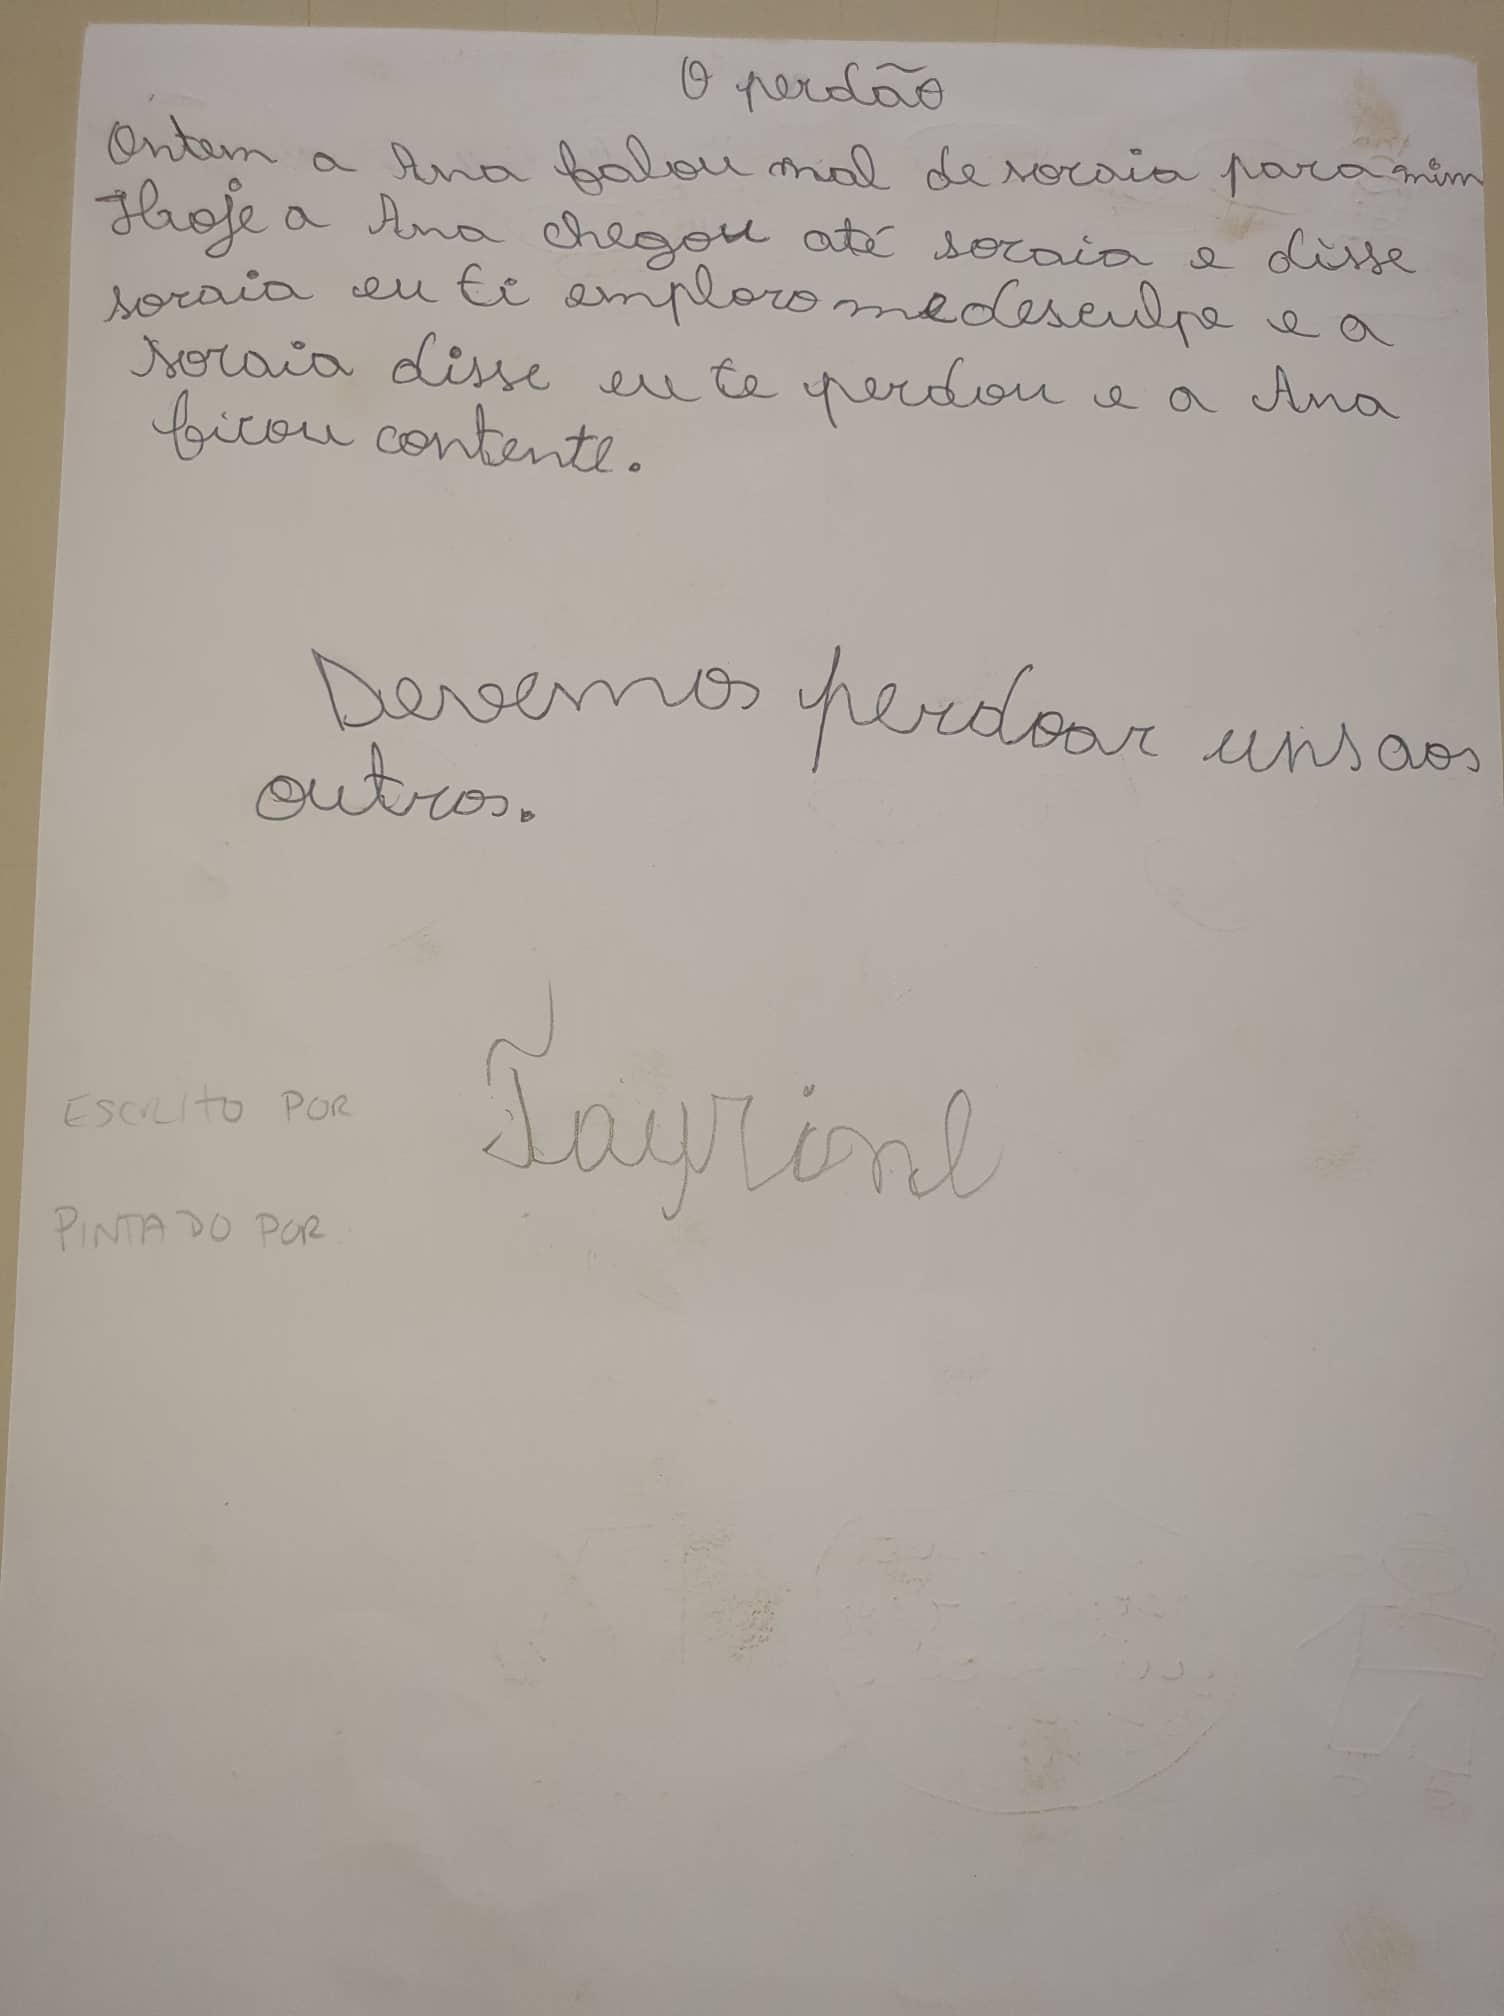 O perdão
Ontem a Ana falou mal de soraia para mim
Hoje a Ana chegou até soraia e disse
soraia eu ti emploro me desculpe e a
soraia disse eu te perdou e a Ana
ficou contente.
Devemos perdoar uns aos
outros.
ESCRITO POR
PINTADO POR